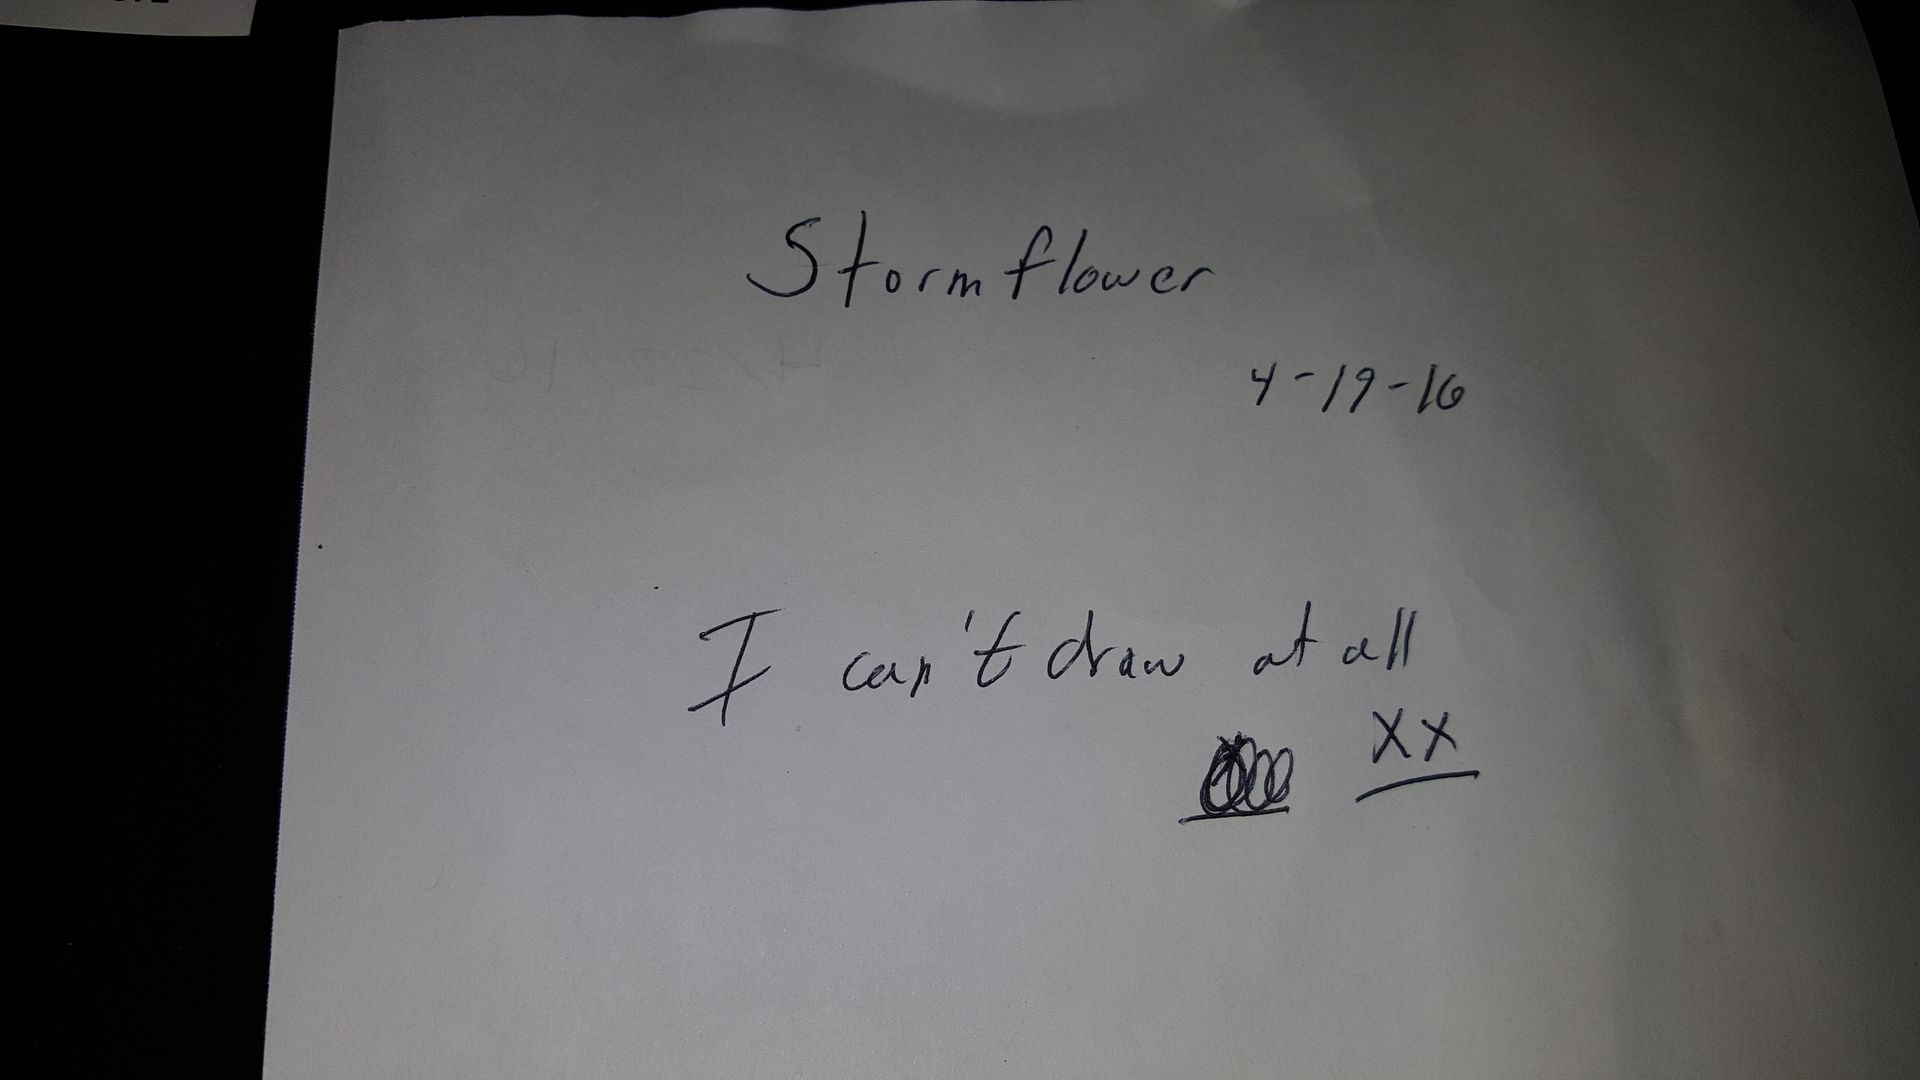 Stormflower
4-19-16
I can't draw at all
XX